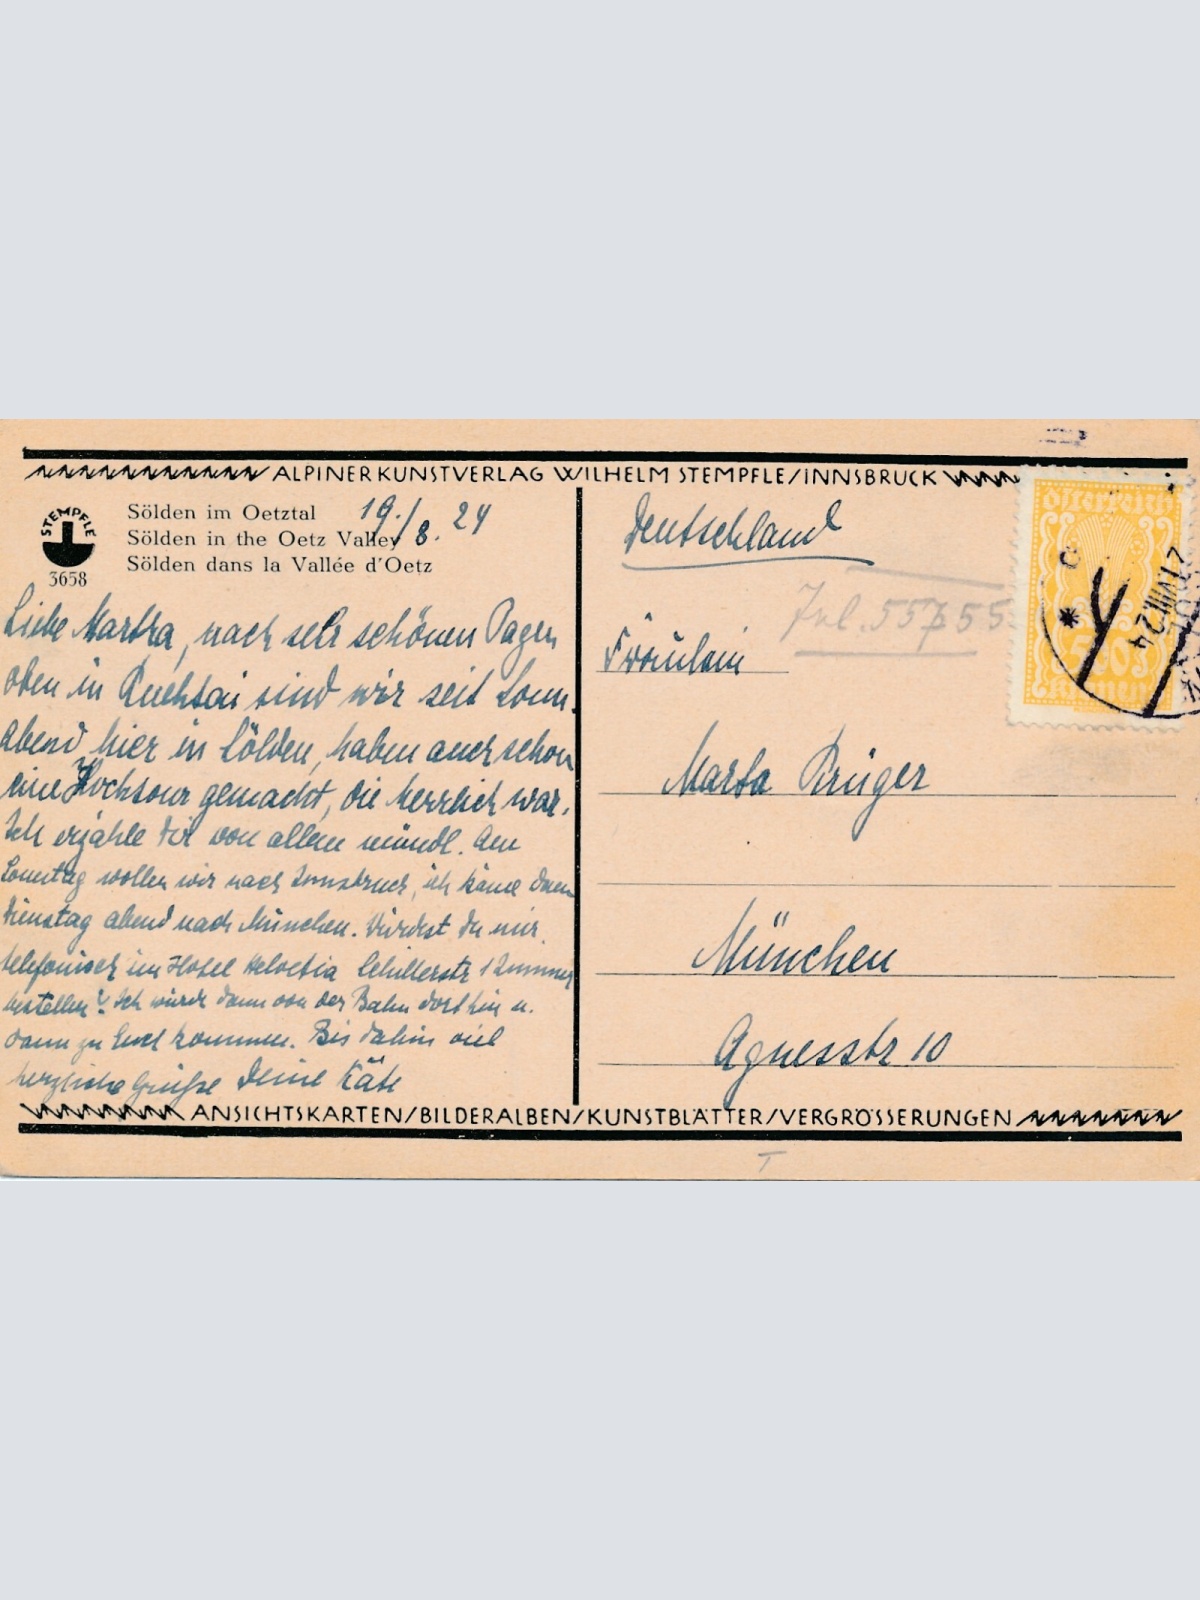 ALPINER KUNSTVERLAG WILHELM STEMPFLE/INNSBRUCK
STEMPFLE
3658
Sölden im Oetztal
Sölden in the Oetz Valley
Sölden dans la Vallée d'Oetz
19./8. 24
Liebe Martha, nach sehr schönen Tagen
oben in sind wir seit Sonn-
abend hier in Sölden, haben auch schon
eine Hochtour gemacht, die herrlich war.
Ich erzähle Dir von allem mündl. Am
Sonntag wollen wir nach Innsbruck, ich käme dann
Dienstag abend nach München. Würdest Du mir
telefonisch im Hotel Helvetia Schillerstr 1 Zimmer
bestellen? Ich würde dann von der Bahn dorthin u.
dann zu Euch kommen. Bis dahin viel
herzliche Grüße Deine Käte
Deutschland
Tel. 55755
Fräulein
Marta Krüger
München
Agnesstr 10
Österreich
500
Kronen
21.VIII.24
ANSICHTSKARTEN/BILDERALBEN/KUNSTBLÄTTER/VERGRÖSSERUNGEN
T